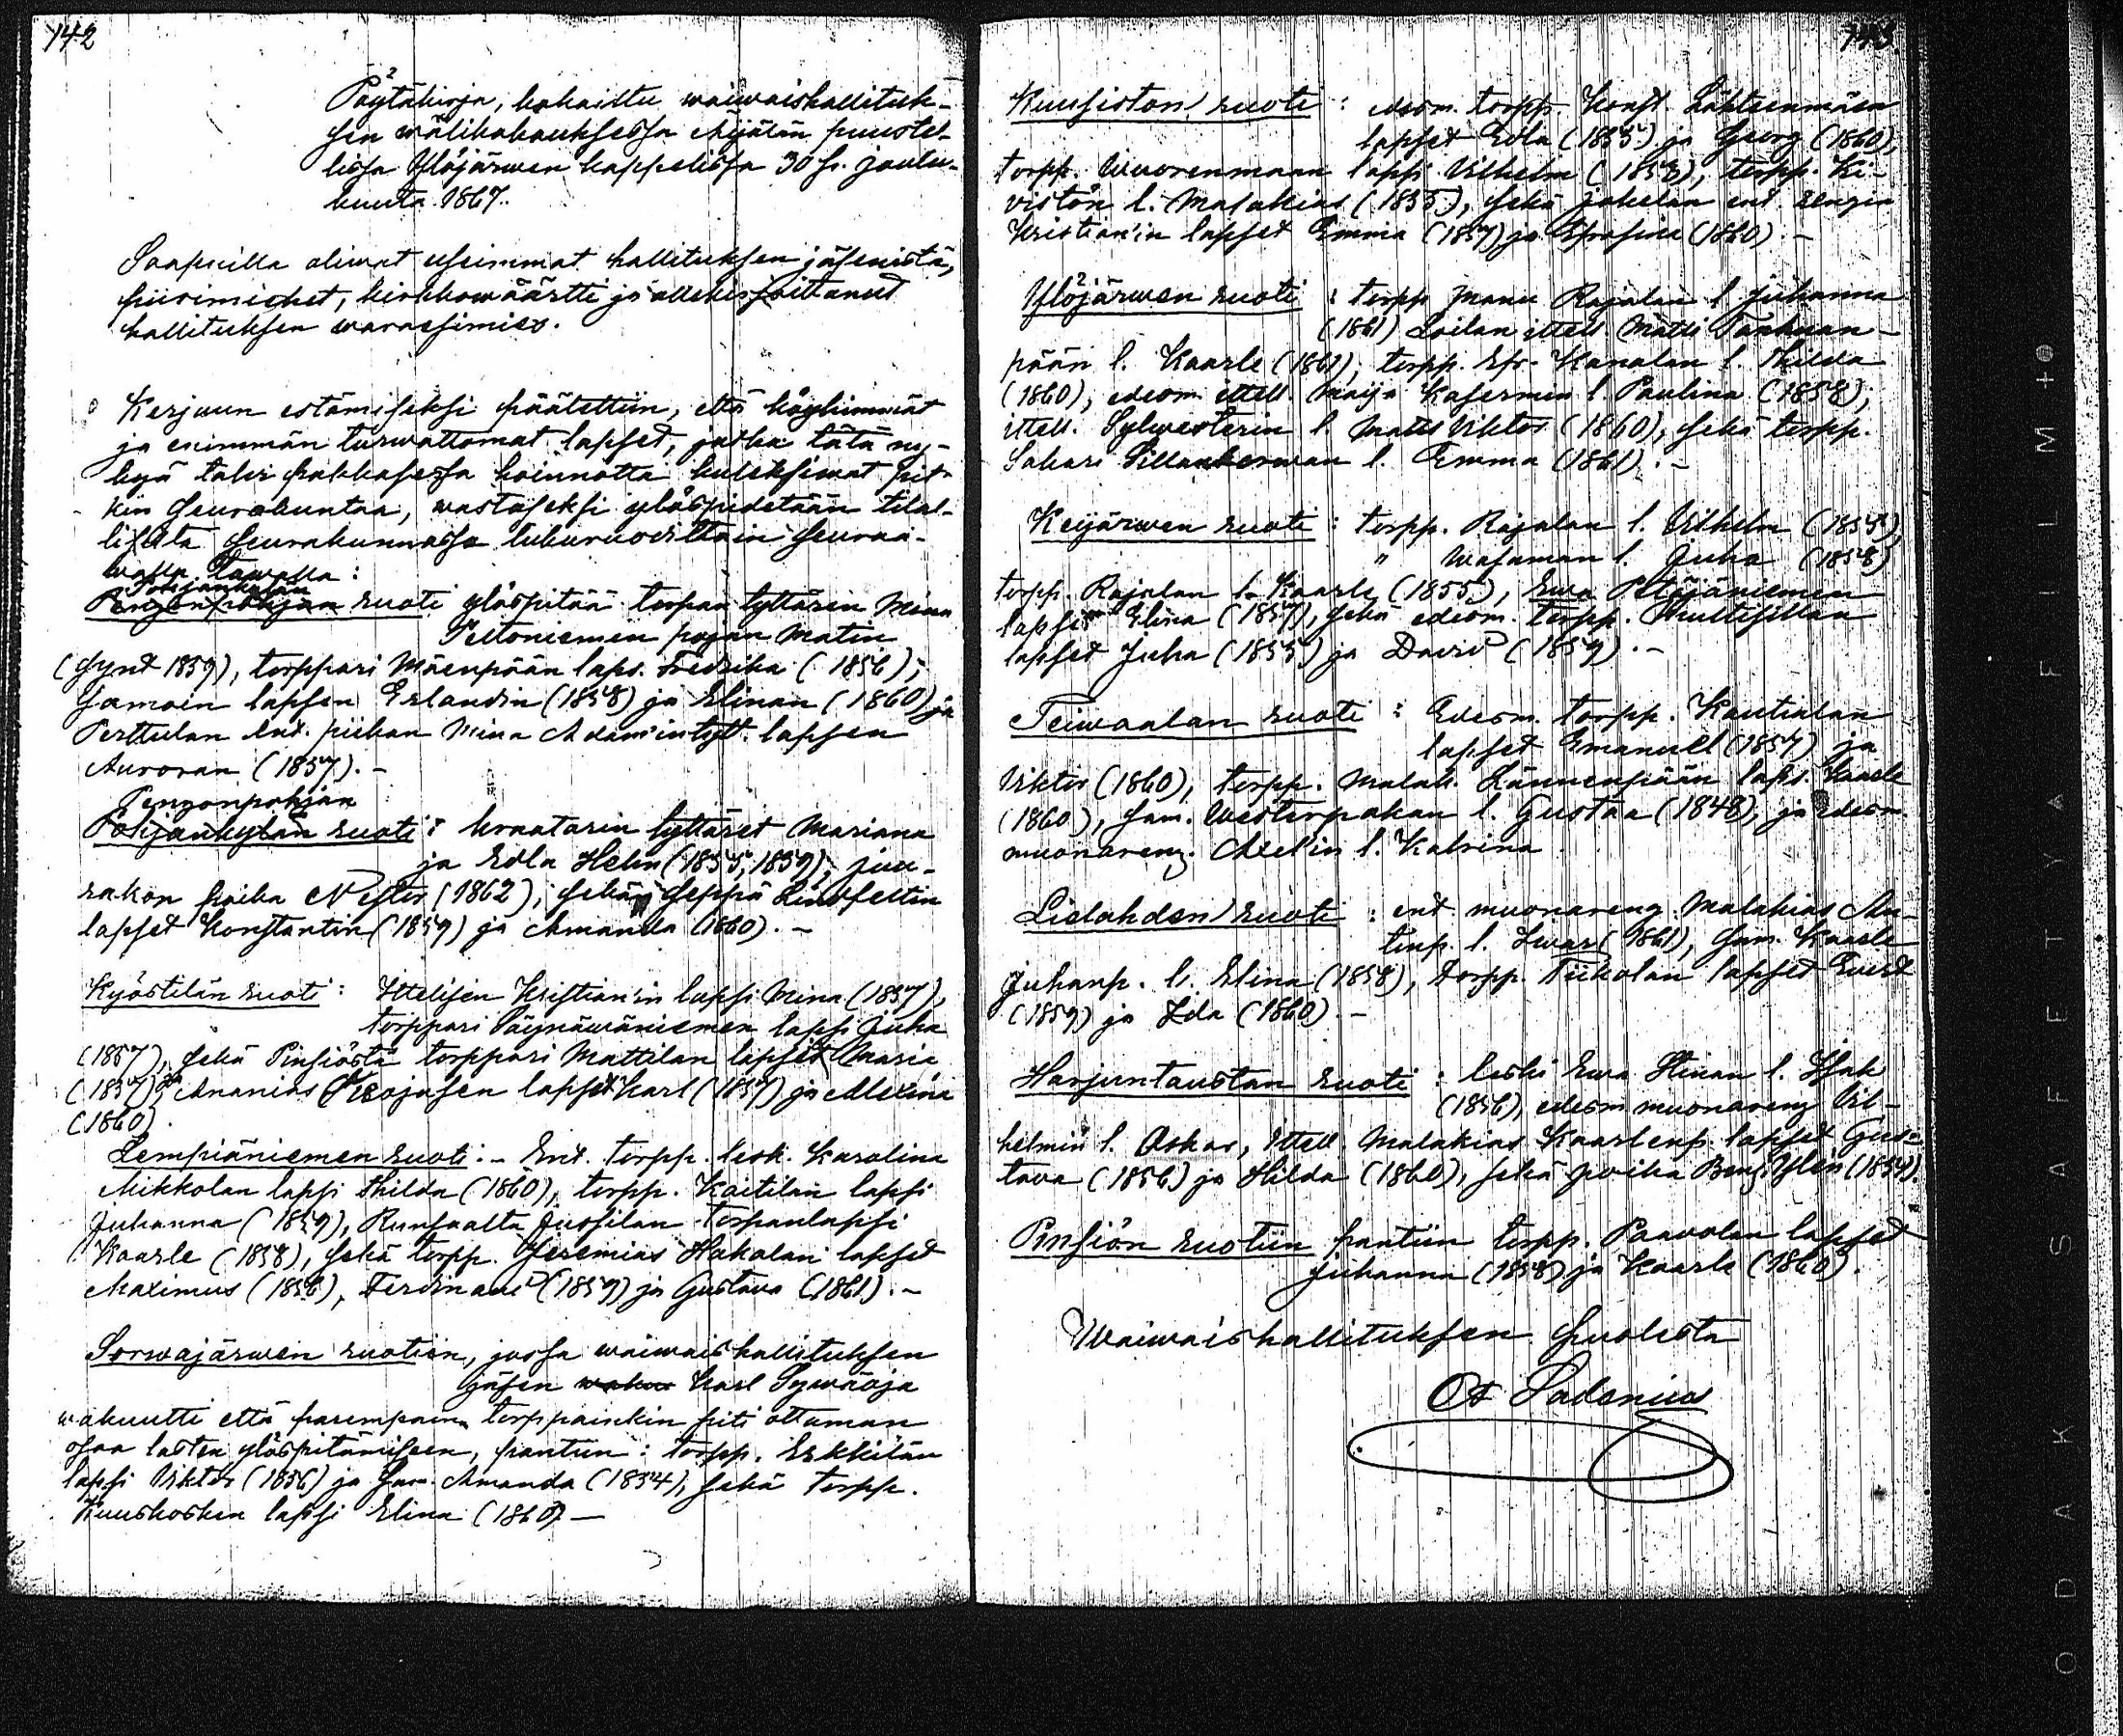 142
Pöytäkirja, kokaistu waiwaishallituk-
sen wälikokouksessa Mijälän puustel-
lissa Ylöjärwen kappelissa 30 p. joulu-
kuuta 1867.
Saapuilla oliwat useimmat hallituksen jäsenistä,
piirimiehet, kirkkowäärtti ja allekirjoittanut
hallituksen waraesimies.
Kerjuun estämiseksi päätettiin, että köyhimmät
ja enimmän turwattomat lapset, jotka tätä ny-
kyä talvi pakkasessa hoinnotta kuleksiwat pit-
kin seurakuntaa, wastaseksi ylöspidetään tilal-
lisilta seurakunnassa lukuruodittain seuraa-
walla tawalla:
Pohjankylän
Pengonpohjan ruoti ylöspitää torpan tyttären Mina
Peltoniemen pojan Matin
(synt 1859), torppari Mäenpään laps. Fredrika (1856);
samoin lapsen Erlandin (1858) ja Elinan (1860) ja
Perttulan ent. piikan Mina Adamintytt. lapsen
Auroran (1857). -
Pengonpohjan
Pohjankylän ruoti: kraatarin tyttäret Mariana
ja Edla Helin (1855, 1859), juu-
rakon poika Nestor (1862), sekä seppä Lindfeltin
lapset Konstantin (1859) ja Amanda (1860). -
Kyöstilän ruoti: Ittelisen Kristian'in lapsi Mina (1857),
torppari Päynäwäniemen lapsi Juha
(1857), sekä Pinsiöstä torppari Mattilan lapset Maria
(1857) ja Ananias Ojen lapset Karl (1857) ja Alexina
(1860).
Lempiäniemen ruoti: - Ent. torpp. lesk. Karolina
Mikkolan lapsi Hilda (1860), torpp. Kaitilan lapsi
Juhanna (1859), Runsaalta Jussilan torpanlapsi
Kaarle (1858), sekä torpp. Jeremias Hakalan lapset
Maximus (1856), Ferdinand (1859) ja Gustava (1861). -
Sorwajärwen ruotiin, jossa waiwaishallituksen
jäsen Karl Sywäoja
wakuutti että parempain torppainkin piti ottaman
osaa lasten ylöspitämiseen, pantiin: torpp. Erkkilän
lapsi Viktor (1856) ja sam. Amanda (1854), sekä torpp.
Kuuskosken lapsi Elina (1860) -
143.
Kuusiston ruoti: edesm. torpp. Konst. Lähteenmäen
lapset Edla (1855) ja Georg (1860),
torpp. Wuorenmaan lapsi Vilhelm (1858), torpp. Ki-
vistön l. Malakias (1855), sekä Jokelan ent. rengin
Kristian'in lapset Emma (1857) ja Efrosina (1860). -
Ylöjärwen ruoti: torpp Manu Rajalan l. Juhanna
(1861) Loilan ittell Matti Tanhuan-
pään l. Kaarle (1861), torpp. Efr. Hanalan l. Hilda
(1860), edesm. ittell. Maija Kasermin l. Paulina (1858);
ittell. Sylwesterin l. Matts Viktor (1860), sekä torpp.
Sakari Sillankorwan l. Emma (1861). -
Keijärwen ruoti: torpp. Rajalan l. Vilhelm (1858),
" Wasaman l. Juha (1858)
torpp. Rajalan l. Kaarle (1855), Ewa Petäjäniemen
lapset Elina (1857), sekä edesm. torpp. Huultisillan
lapset Juha (1855) ja David (1859). -
Teiwaalan ruoti: Edesm. torpp. Kautialan
lapset Emanuel (1857) ja
Viktor (1860), torpp. Malak. Lännenpään laps. Kaarle
(1860), sam. Westerpakan l. Gustaa (1848), ja edesm.
muonareng. Axel'in l. Katrina.
Lielahden ruoti: ent. muonareng. Malakias An-
tinp. l. Iwar (1861), sam. Kaarle
Juhanp. l. Elina (1858), torpp. Tiikolan lapset Evert
(1859) ja Ida (1860). -
Harjuntaustan ruoti: leski Ewa Stinan l. Isak
(1856), edesm muonareng Vil-
helmin l. Oskar, ittell. Malakias Kaarlenp. lapset Gus-
tava (1856) ja Hilda (1860), sekä poika Benj. Ylén (1854).
Pinsiön ruotiin pantiin torpp. Paavolan lapset
Juhanna (1858) ja Kaarle (1860).
Waiwaishallituksen puolesta
A Sadenius
KODAK SAFETY A FILM